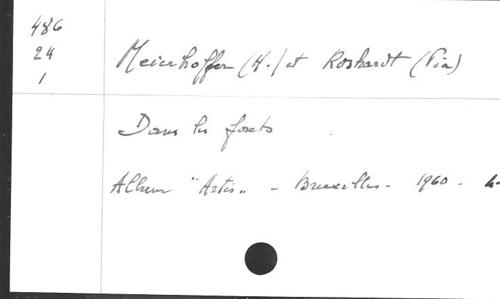 486
24
1
Meierhoffer (H.) et Roshardt (Pia)
Dans les forêts
Album "Artis" - Bruxelles - 1960 -